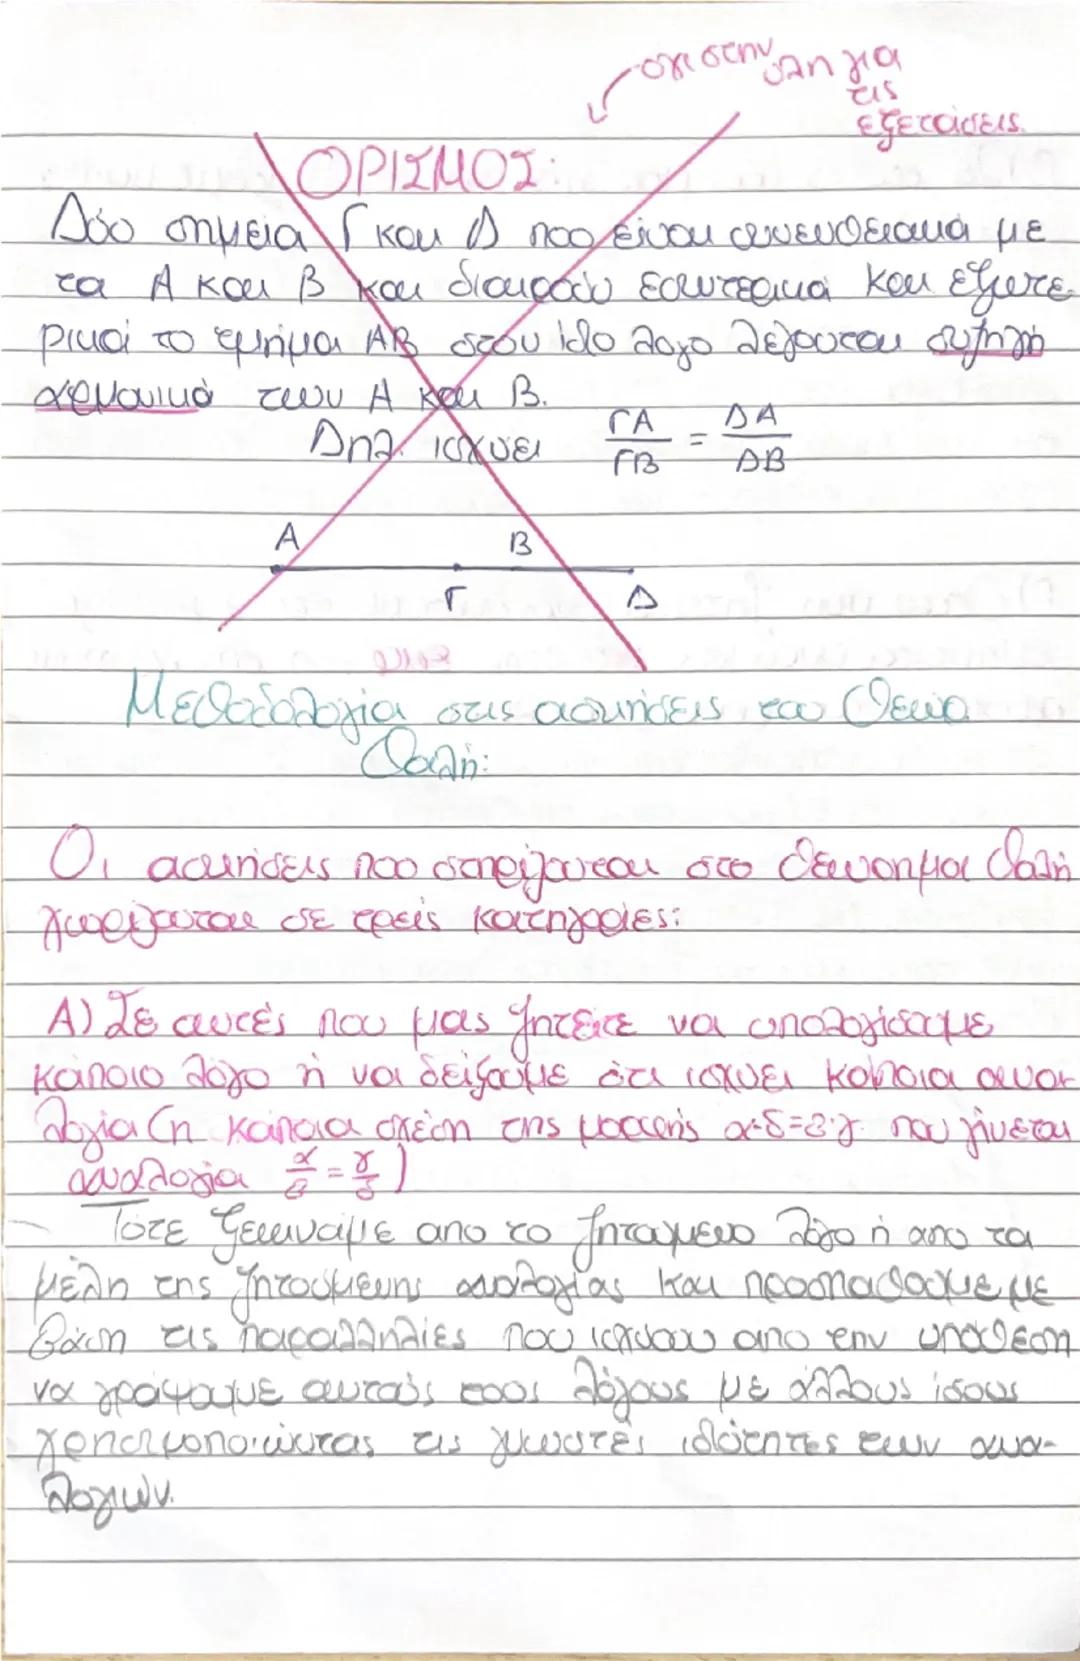 όχι στην ύλη για
τις
εξετάσεις.
ΟΡΙΣΜΟΣ:
Δύο σημεία Γ και Δ που είναι συνευθειακά με
τα Α και Β και διαιρούν εσωτερικά και εξωτε
ρικά το τμήμα ΑΒ στον ίδιο λόγο λέγονται συζηγή
αρμονικά των Α και Β.
Δηλ. ισχύει ΓΑ/ΓΒ = ΔΑ/ΔΒ
Α Β
Γ Δ
Μεθοδολογία στις ασκήσεις του Θεωρ.
Θαλή:
Οι ασκήσεις που στηρίζονται στο Θεώρημα Θαλή
χωρίζονται σε τρείς κατηγορίες:
Α) Σε αυτές που μας ζητείτε να υπολογίσουμε
κάποιο λόγο ή να δείξουμε ότι ισχύει κάποια ανα
λογία (η κάποια σχέση της μορφής α·δ=β·γ που γίνεται
αναλογία α/β = γ/δ)
Τότε ξεκινάμε απο το ζητούμενο λόγο ή απο τα
μέλη της ζητούμενης αναλογίας και προσπαθούμε με
βάση τις παραλληλίες που ισχύουν απο την υπόθεση
να γράψουμε αυτούς τους λόγους με άλλους ίσους
χρησιμοποιώντας τις γνωστές ιδιότητες των ανα-
λογιών.